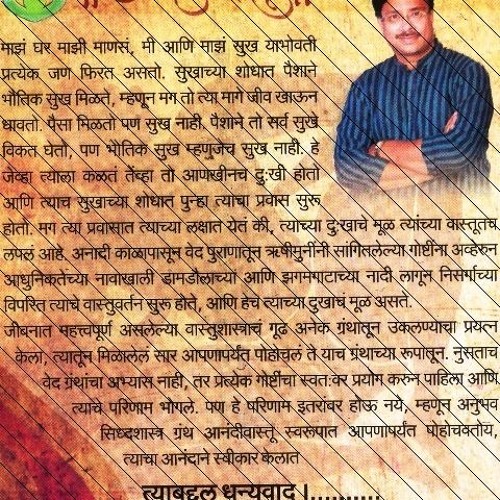 माझं घर माझी माणसं, मी आणि माझं सुख याभोवती
प्रत्येक जण फिरत असतो. सुखाच्या शोधात पैशाने
भौतिक सुख मिळते, म्हणून मग तो त्या मागे जीव खाऊन
धावतो. पैसा मिळतो पण सुख नाही. पैशाने तो सर्व सुखे
विकत घेतो, पण भौतिक सुख म्हणजेच सुख नाही. हे
जेव्हा त्याला कळतं तेंव्हा तो आणखीनच दुःखी होतो
आणि त्याच सुखाच्या शोधात पुन्हा त्याचा प्रवास सुरू
होतो. मग त्या प्रवासात त्याच्या लक्षात येतं की, त्याच्या दुःखाचे मूळ त्यांच्या वास्तूतच
लपलं आहे. अनादी काळापासून वेद पुराणातून ऋषीमुनींनी सांगितलेल्या गोष्टींना अव्हेरुन
आधुनिकतेच्या नावाखाली डामडौलाच्या आणि झगमगाटाच्या नादी लागून निसर्गाच्या
विपरित त्याचे वास्तुवर्तन सुरू होते, आणि हेच त्याच्या दुखाच मूळ असते.
जीवनात महत्त्वपूर्ण असलेल्या वास्तुशास्त्राचं गूढ अनेक ग्रंथातून उकलण्याचा प्रयत्न
केला, त्यातून मिळालेलं सार आपणापर्यंत पोहोचलं ते याच ग्रंथाच्या रूपातून. नुसताच
वेद ग्रंथांचा अभ्यास नाही, तर प्रत्येक गोष्टींचा स्वतःवर प्रयोग करुन पाहिला आणि
त्याचे परिणाम भोगले. पण हे परिणाम इतरांवर होऊ नये, म्हणून अनुभव
सिध्दशास्त्र ग्रंथ आनंदीवास्तू स्वरूपात आपणापर्यंत पोहोचवतोय,
त्याचा आनंदाने स्वीकार केलात
त्याबद्दल धन्यवाद !..........